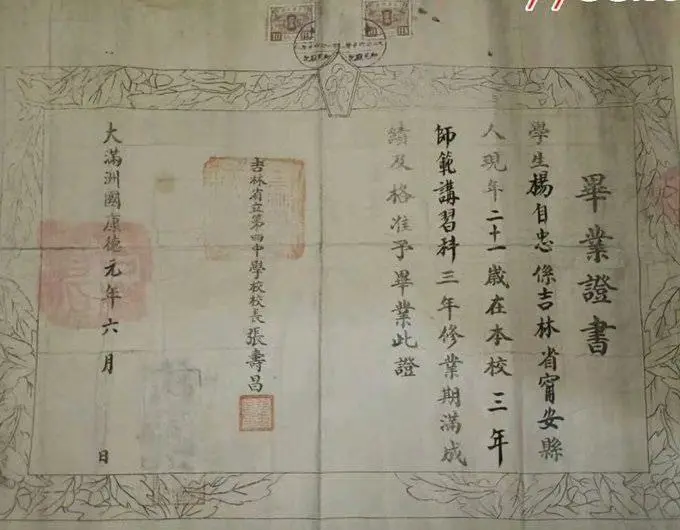 畢業證書
學生楊自忠係吉林省甯安縣
人現年二十一歲在本校三年
師範講習科三年修業期滿成
績及格准予畢業此證
吉林省立第四中學校校長張壽昌
大滿洲國康德元年六月 日